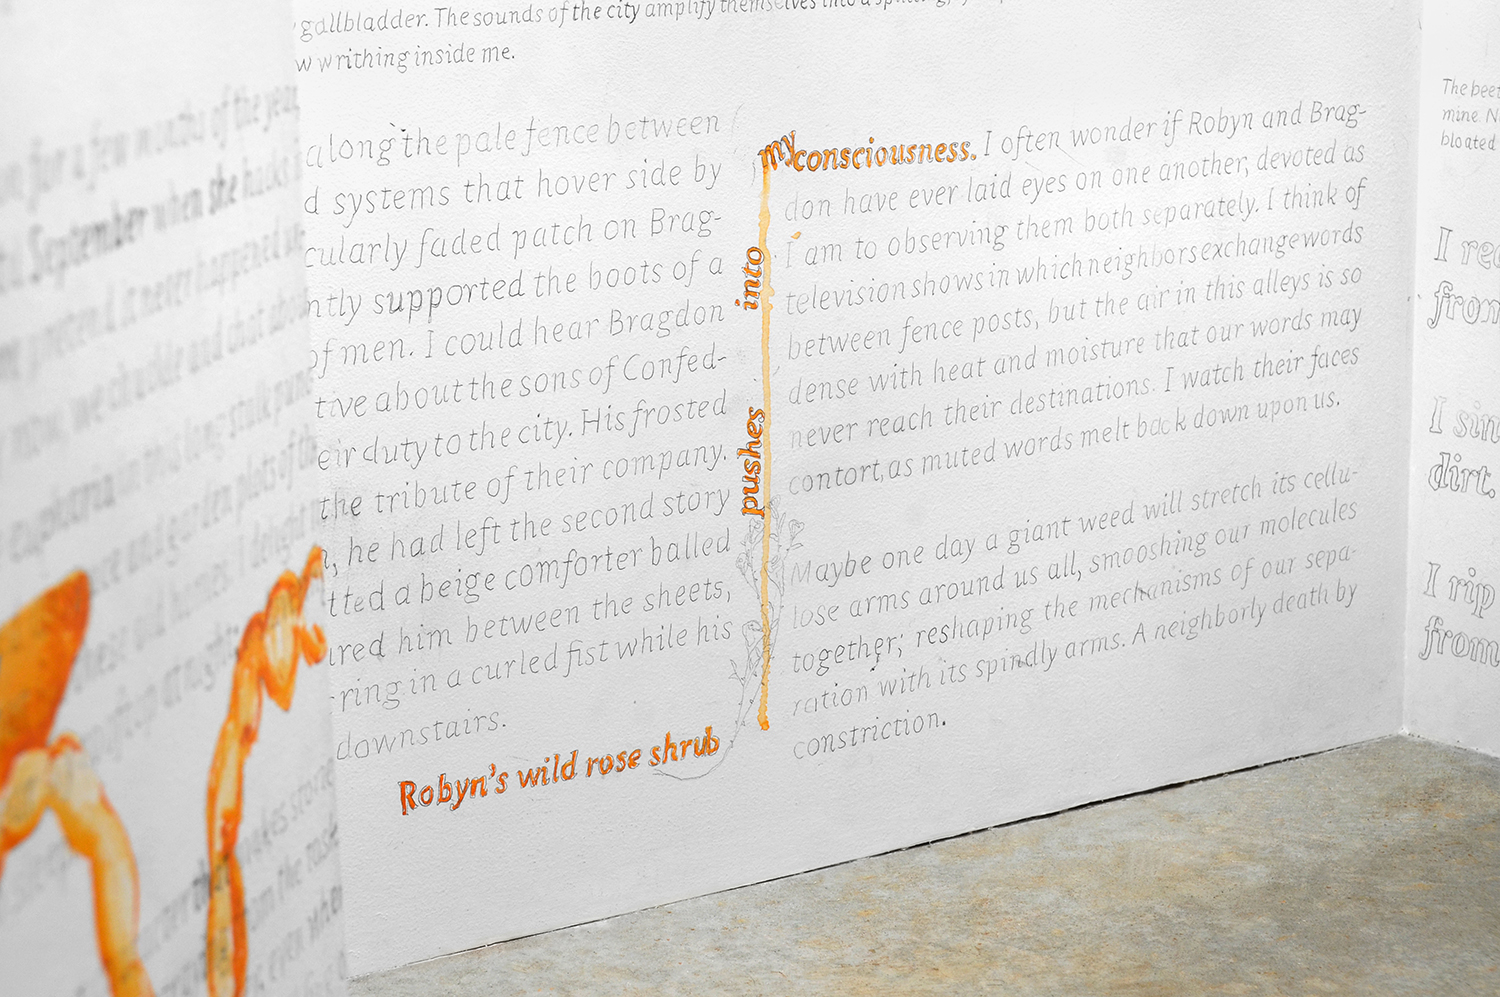 gallbladder. The sounds of the city amplify themselves into a
writhing inside me.
along the pale fence between
d systems that hover side by
cularly faded patch on Brag-
ntly supported the boots of a
of men. I could hear Bragdon
tive about the sons of Confed-
eir duty to the city. His frosted
the tribute of their company.
, he had left the second story
tted a beige comforter balled
ired him between the sheets,
ring in a curled fist while his
downstairs.
Robyn's wild rose shrub
pushes into
my consciousness. I often wonder if Robyn and Brag-
don have ever laid eyes on one another, devoted as
I am to observing them both separately. I think of
television shows in which neighbors exchange words
between fence posts, but the air in this alleys is so
dense with heat and moisture that our words may
never reach their destinations. I watch their faces
contort, as muted words melt back down upon us.
Maybe one day a giant weed will stretch its cellu-
lose arms around us all, smooshing our molecules
together; reshaping the mechanisms of our sepa-
ration with its spindly arms. A neighborly death by
constriction.
on for a few months of the year
September when she
it never happened
we chuckle and chat
long stalk
and garden plots of the
I delight
The beet
mine. N
bloated
I re
from
I sin
dirt.
I rip
from